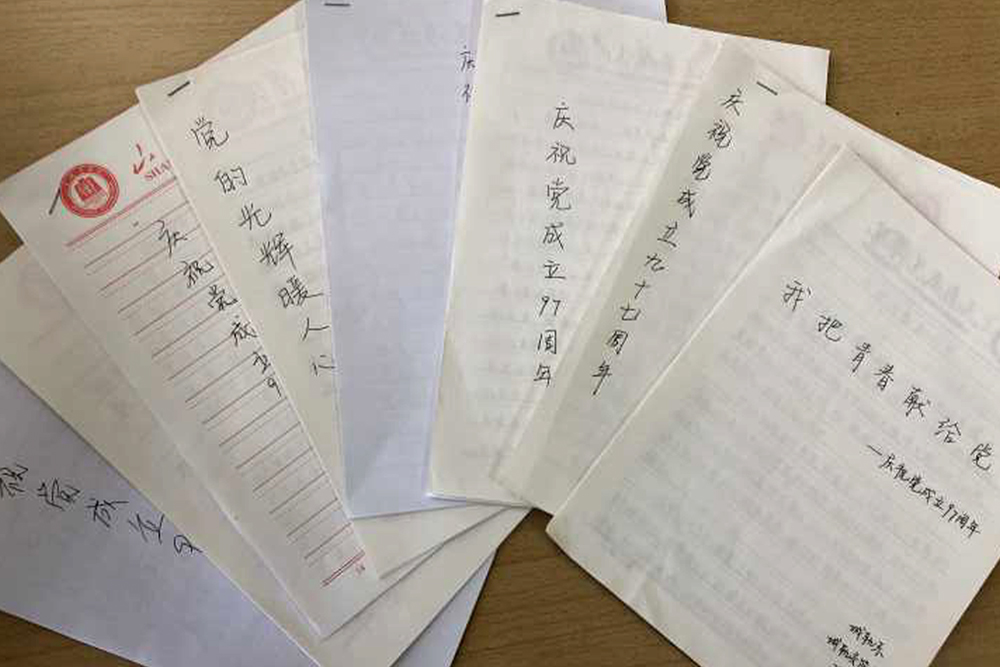 祝党成立9
庆祝党成立9
山
SHA
党的光辉暖人心
庆祝党成立97周年
庆祝党成立九十七周年
我把青春献给党
—庆祝党成立97周年